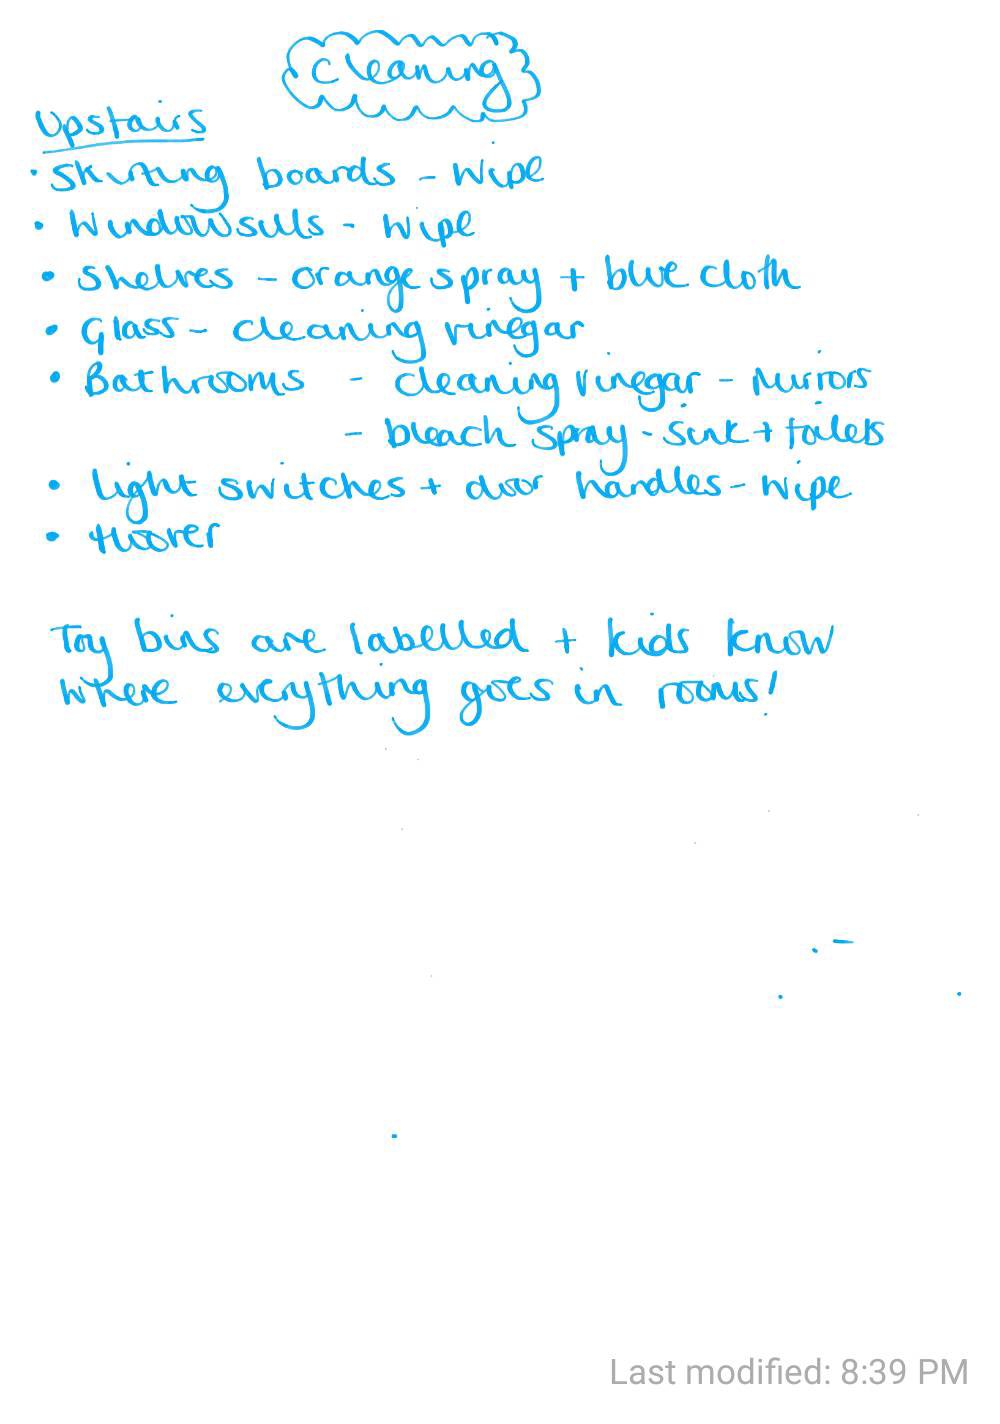 Cleaning
Upstairs
• Skirting boards - Wipe
• Windowsills - Wipe
• Shelves - orange spray + blue cloth
• Glass - cleaning vinegar
• Bathrooms - cleaning vinegar - Mirrors
- bleach spray - sink + toilets
• Light switches + door handles - wipe
• Hoover
Toy bins are labelled + kids know
where everything goes in rooms!
Last modified: 8:39 PM